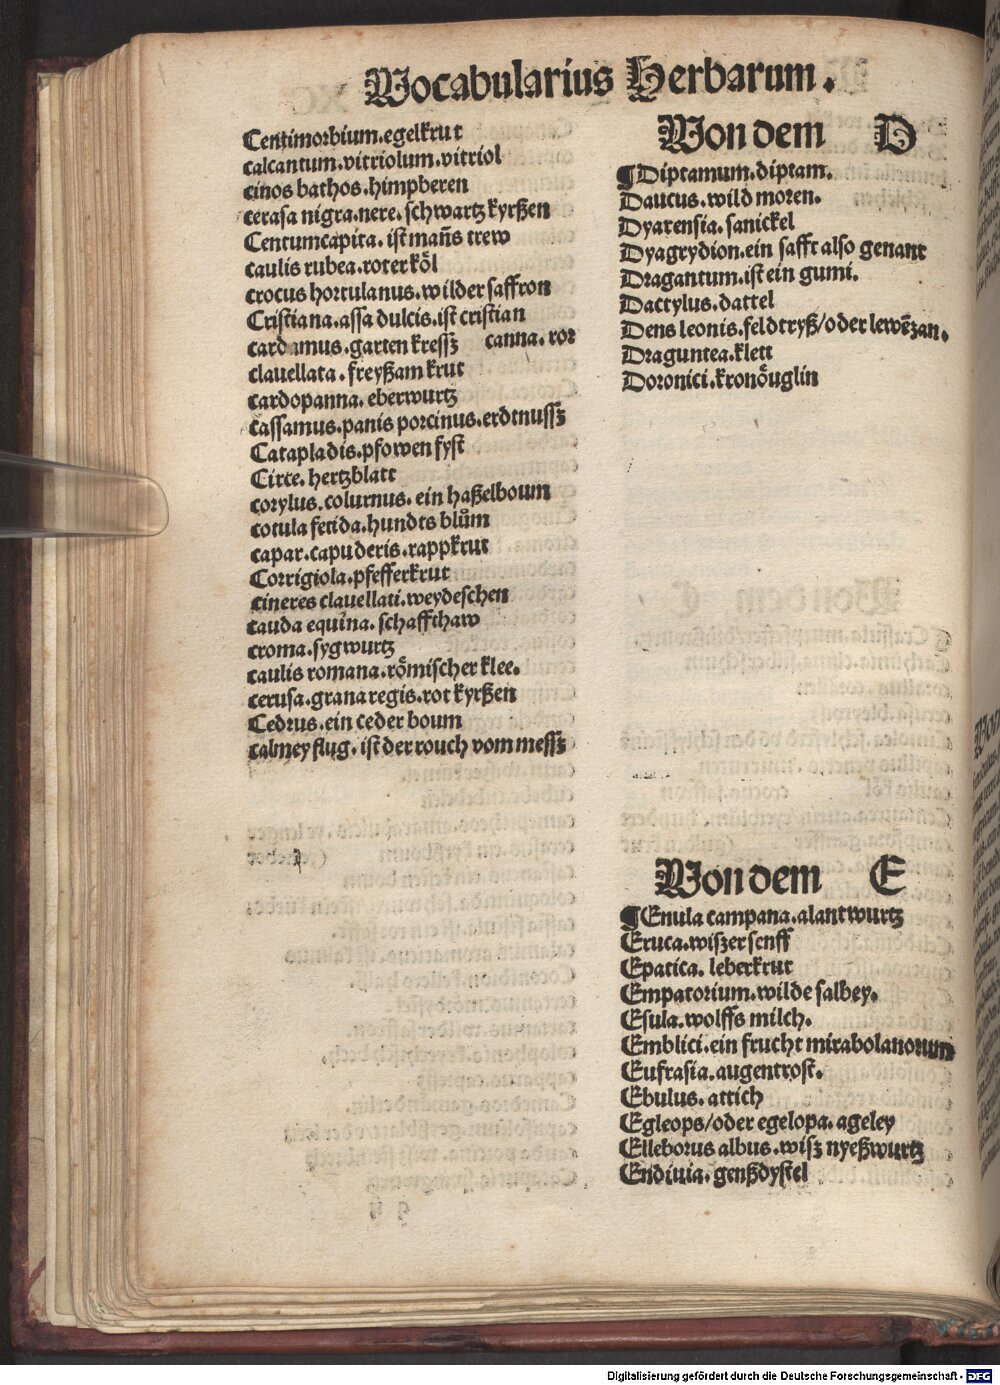 Vocabularius Herbarum.
Centimorbium.egelkrut
calcantum.vitriolum.vitriol
cinos bathos.himpberen
cerasa nigra.nere.schwartz kyrßen
Centumcapita.ist mañs trew
caulis rubea.roter köl
crocus hortulanus.wilder saffron
Cristiana.assa dulcis.ist cristian
cardamus.garten kressz canna.ror
clauellata.freyßam krut
cardopanna.eberwurtz
cassamus.panis porcinus.erdtnussz
Catapladis.pfowen fyst
Circe.hertzblatt
corylus.colurnus.ein haßelboum
cotula fetida.hundts blům
capar.capuderis.rappkrut
Corrigiola.pfefferkrut
cineres clauellati.weydeschen
cauda equina.schaffthaw
croma.sygwurtz
caulis romana.römischer klee.
cerusa.grana regis.rot kyrßen
Cedrus.ein ceder boum
calmeyflug.ist der rouch vom messz
Von dem D
¶Diptamum.diptam.
Daucus.wild moren.
Dyarensia.sanickel
Dyagrydion.ein safft also genant
Dragantum.ist ein gumi.
Dactylus.dattel
Dens leonis.feldtryß/oder lewēzan.
Draguntea.klett
Doronici.kronöuglin
Von dem E
¶Enula campana.alantwurtz
Eruca.wiszer senff
Epatica.leberkrut
Empatorium.wilde salbey.
Esula.wolffs milch.
Emblici.ein frucht mirabolanorum
Eufrasia.augentrost.
Ebulus.attich
Egleops/oder egelopa.ageley
Elleborus albus.wisz nyeßwurtz
Endiuia.genßdystel
Digitalisierung gefördert durch die Deutsche Forschungsgemeinschaft - DFG